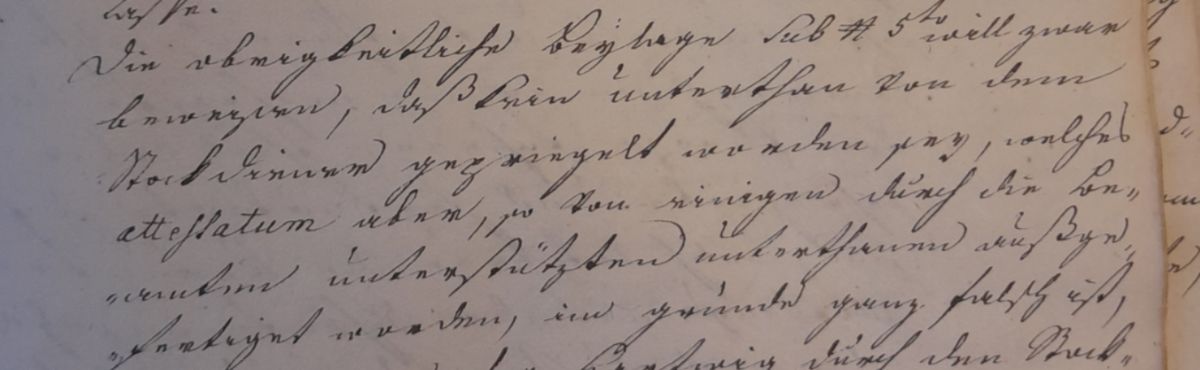 lasse.
Die obrigkeitliche Beylage sub # 5to will zwar
beweisen, daß kein unterthan von dem
Stockdiener gepriegelt worden sey, welches
attestatum aber, so von einigen durch die Be-
amten unterstützten unterthanen außge-
fertiget worden, im grunde ganz falsch ist,
durch den Stock-